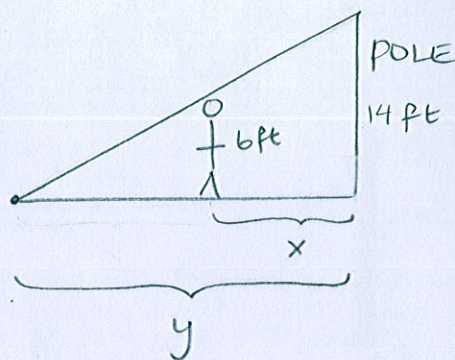 POLE
14 ft
6 ft
x
y